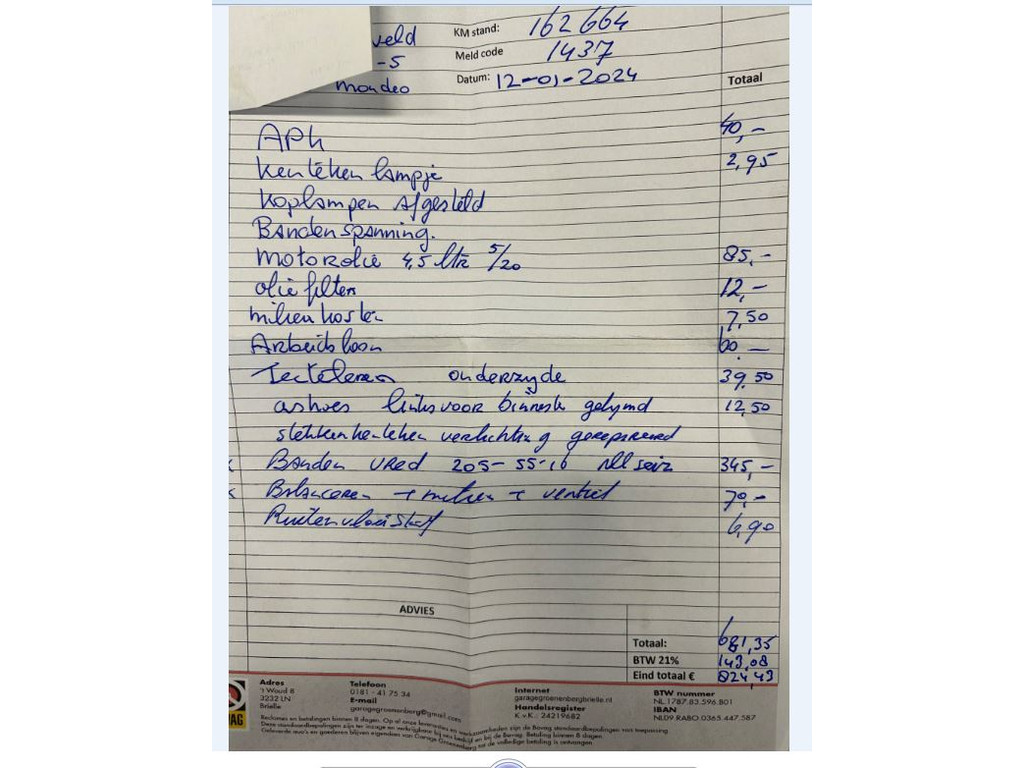 veld KM stand: 162664
-5 Meld code 1437
mondeo Datum: 12-01-2024
Totaal
APK 40,-
Kenteken lampje 2,95
Koplampen Afgesteld
Bandenspanning.
Motorolie 4,5 ltr 5/20 85,-
olie filter 12,-
milieu kosten 7,50
Arbeidsloon 60.-
Tecteleren onderzyde 39,50
ashoes links voor binnenste gelymd 12,50
stekker kenteken verlichting gerepareerd
Banden Vred 205-55-16 All seiz 345,-
Balanceren + milieu + ventiel 70,-
Ruitenvloeistof 6,90
ADVIES
Totaal: 681,35
BTW 21% 143,08
Eind totaal € 824,43
Adres
't Woud 8
3232 LN
Brielle
Telefoon
0181 - 41 75 34
E-mail
garagegroenenberg@gmail.com
Internet
garagegroenenbergbrielle.nl
Handelsregister
K.v.K.: 24219682
BTW nummer
NL.1787.83.596.B01
IBAN
NL09 RABO 0365.447.587
Reclames en betalingen binnen 8 dagen. Op al onze leveranties en werkzaamheden zijn de Bovag standaardbepalingen van toepassing
Deze standaardbepalingen zijn ter inzage en verkrijgbaar bij ons bedrijf en bij de Bovag. Betaling binnen 8 dagen.
Geleverde auto's en goederen blijven eigendom van Garage Groenenberg tot de volledige betaling is ontvangen